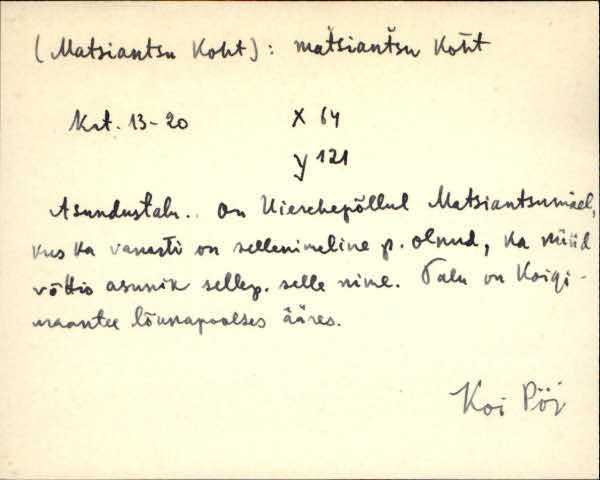 (Matsiantsu Koht): mat̀siant̀su koht̀
Krt. 13-20 X 64
y 121
Asundustalu.. On Uierehepõllul Matsiantsumäel,
kus ka vanasti on sellenimeline p. olnud, ka nüüd
võttis asunik sellep. selle nime. Talu on Koigi-
maantee lõunapoolses ääres.
Koi Pöi